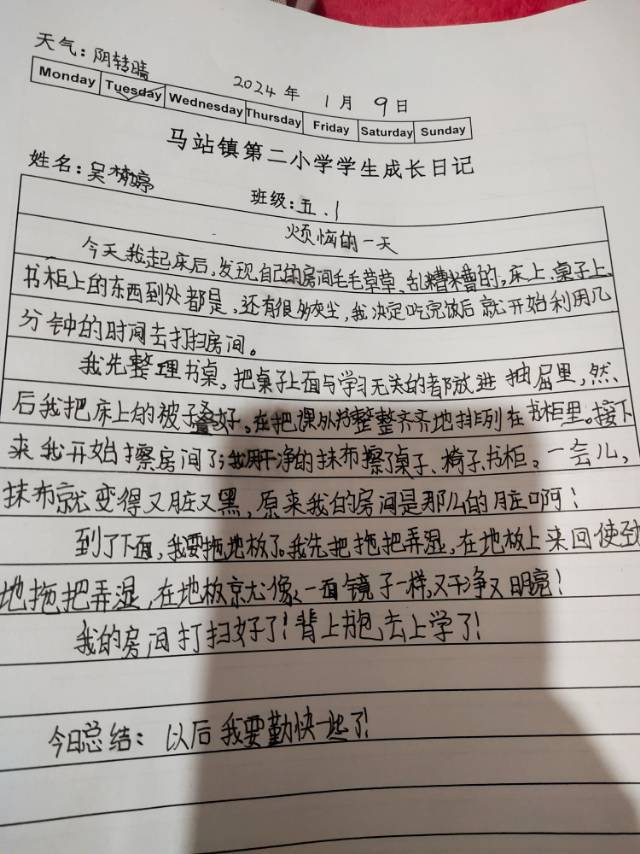 天气：阴转晴
2024年 1月 9日
Monday Tuesday Wednesday Thursday Friday Saturday Sunday
马站镇第二小学学生成长日记
姓名：吴梦婷 班级：五.1
烦恼的一天
今天我起床后,发现自己的房间毛毛草草、乱糟糟的,床上、桌子上、
书柜上的东西到处都是,还有很多灰尘,我决定吃完饭后就开始利用几
分钟的时间去打扫房间。
我先整理书桌,把桌子上面与学习无关的都放进抽屉里,然
后我把床上的被子叠好。在把课外书整整齐齐地排列在书柜里。接下
来我开始擦房间了;我用干净的抹布擦了桌子、椅子、书柜。一会儿,
抹布就变得又脏又黑,原来我的房间是那么的脏啊!
到了下面,我要拖地板了。我先把拖把弄湿,在地板上来回使劲
地拖把弄湿,在地板京尤像一面镜子一样,又干净又明亮!
我的房间打扫好了!背上书包去上学了!
今日总结：以后我要勤快一些了!